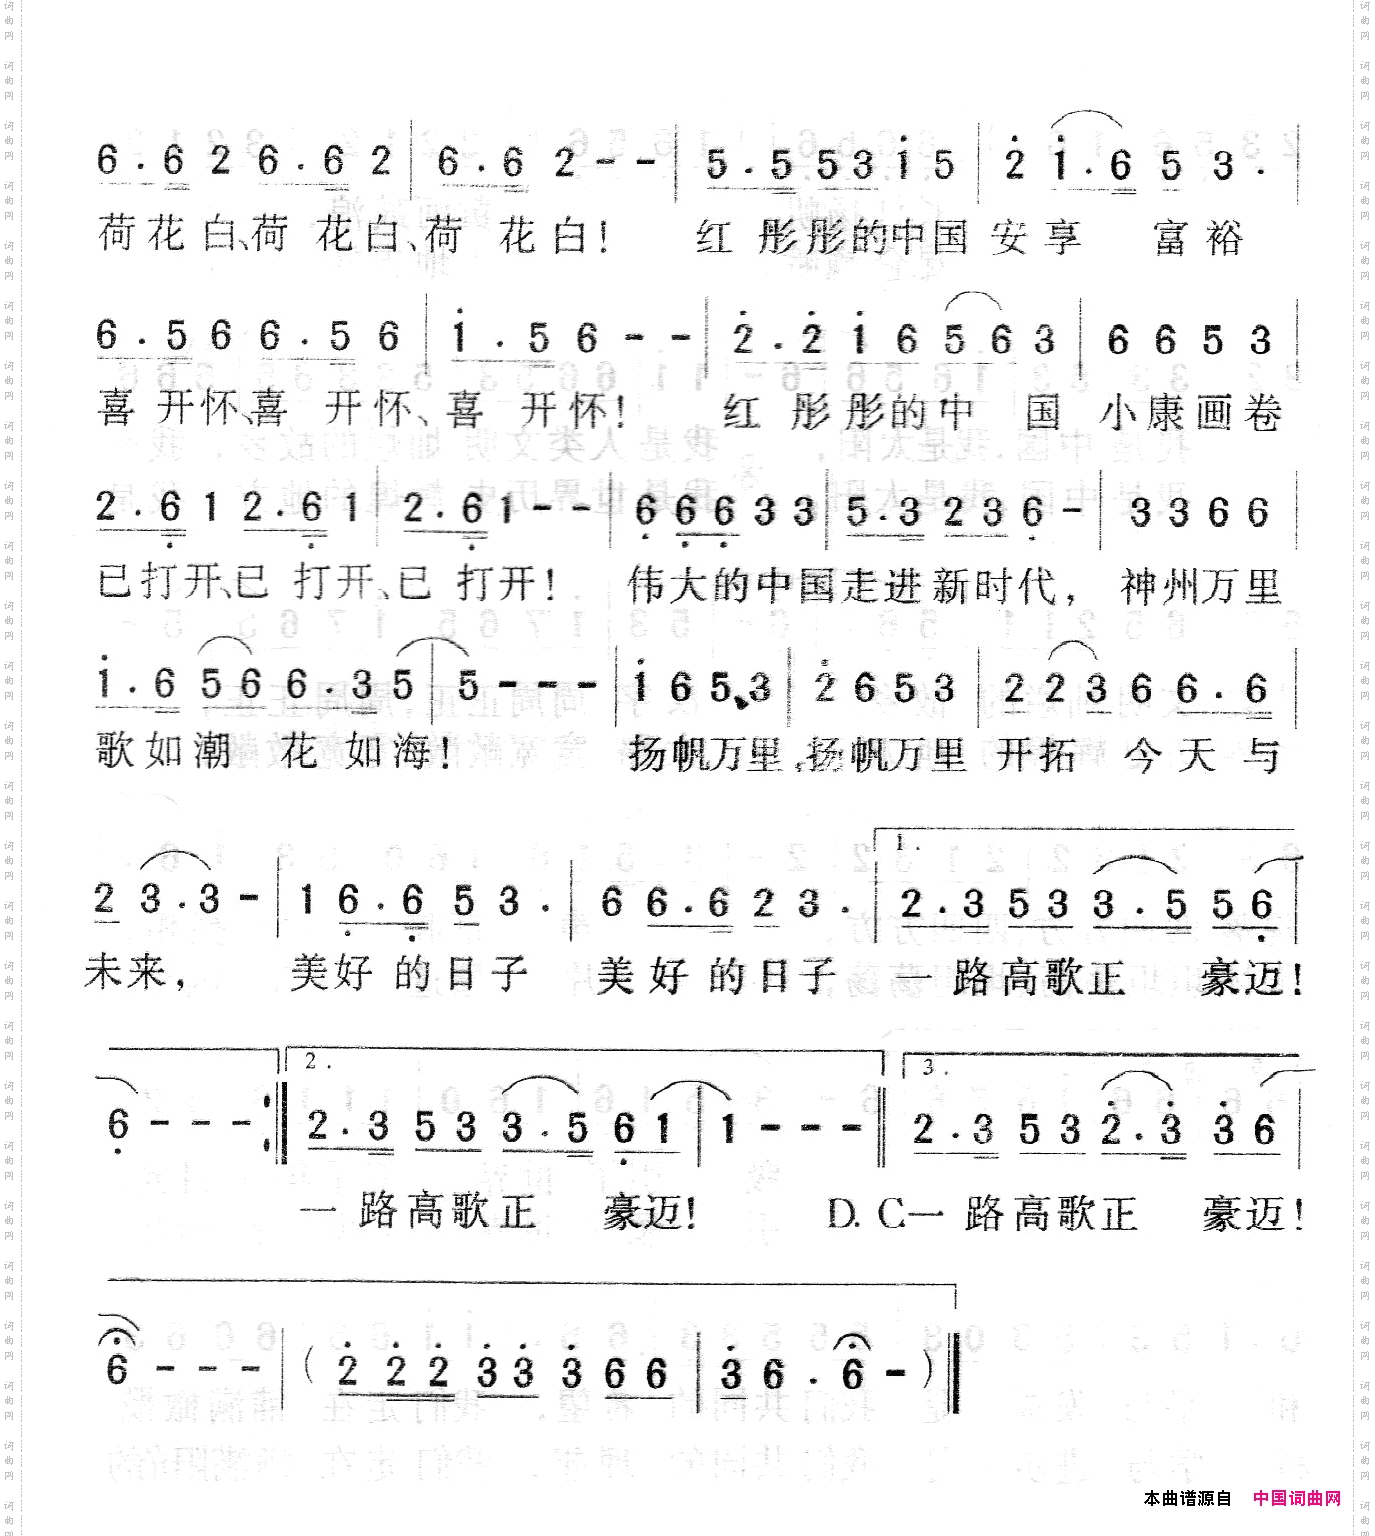 6 . 6 2 6 . 6 2 | 6 . 6 2 - - | 5 . 5 5 3 i 5 | 2 i . 6 5 3 . |
荷花白、荷 花白、荷 花白! 红 彤彤的中国 安享 富裕
6 . 5 6 6 . 5 6 | i . 5 6 - - | 2 . 2 i 6 5 6 3 | 6 6 5 3 |
喜 开怀、喜 开怀、喜 开怀! 红 彤彤的中 国 小康画卷
2 . 6 1 2 . 6 1 | 2 . 6 1 - - | 6 6 6 3 3 | 5 . 3 2 3 6 - | 3 3 6 6 |
已打开、已 打开、已 打开! 伟大的中国走进新时代, 神州万里
i . 6 5 6 6 . 3 5 | 5 - - - | i 6 5 3 | 2 6 5 3 | 2 2 3 6 6 . 6 |
歌如潮 花如海! 扬帆万里,扬帆万里 开拓 今天与
2 3 . 3 - | 1 6 . 6 5 3 . | 6 6 . 6 2 3 . | 1. 2 . 3 5 3 3 . 5 5 6 |
未来, 美好的日子 美好的日子 一路高歌正 豪迈!
6 - - - :| 2. 2 . 3 5 3 3 . 5 6 1 | 1 - - - || 3. 2 . 3 5 3 2 . 3 3 6 |
一路高歌正 豪迈! D.C.一路高歌正 豪迈!
6 - - - | ( 2 2 2 3 3 3 6 6 | 3 6 . 6 - ) |
本曲谱源自 中国词曲网